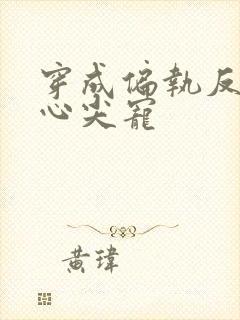 穿成偏執反
心尖寵
黃瑋